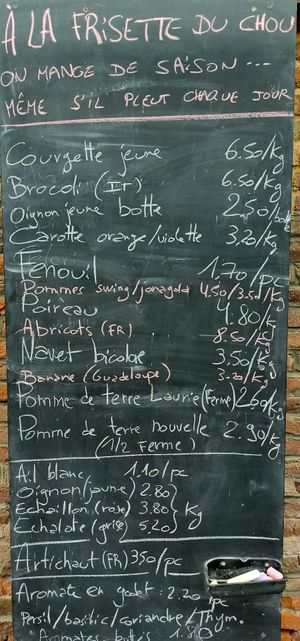 À LA FRISETTE DU CHOU
ON MANGE DE SAISON ...
MÊME S'IL PLEUT CHAQUE JOUR
Courgette jeune 6.50/kg
Brocoli (IT) 6.50/kg
Oignon jeune botte 2.50/botte
Carotte orange/violette 3,20/kg
Fenouil 1,70/pc
Pommes swing/jonagold 4.50/3.50/kg
Poireau 4.80/k
Abricots (FR) 8.50/kg
Navet bicolore 3.50/kg
Banane (Guadeloupe) 3.20/kg
Pomme de terre Laurie (Ferme) 2.60/kg
Pomme de terre nouvelle 2.90/kg
(1/2 Ferme)
Ail blanc 1.10/pc
Oignon (jaune) 2.80
Echaillon (rose) 3.80 } kg
Echalote (grise) 5.20
Artichaut (FR) 3.50/pc
Aromate en godet: 2.20/pc
Persil/basilic/coriandre/Thym.